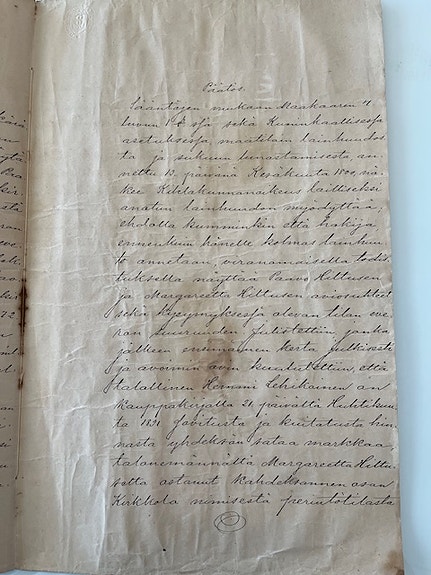 Päätös.
Sääntöjen mukaan Maakaaren 4
luvun 1 § :ssä sekä Kuninkaallisessa
asetuksessa maatilain lainhuudos
ta ja sukuun lunastamisesta an
nettu 13. päivänä Kesäkuuta 1800, nä
kee Kihlakunnanoikeus lailliseksi
anotun lainhuudon myödyttää,
ehdolla kummunkin että hakija
ennenkuin hänelle kolmas lainhuu
to annetaan, viranomaisella todis
tuksella näyttää Paavo Hiltusen
ja Margareetta Hiltusen aviosuhteet
sekä kysymyksessä olevan tilan
suuruuden jonka
jälkeen ensimmäinen kerta julkisesti
ja avoimin ovin kuulutettiin, että
talollinen Hemmi Lehikoinen on
kauppakirjalla 26 päivältä Huhtikuu
ta 1891 sovitusta ja kuitatusta hin
nasta yhdeksän sataa markkaa
talonemännältä Margareetta Hiltu
selta ostanut kahdeksannen osan
Kirkkola nimisestä perintötilasta